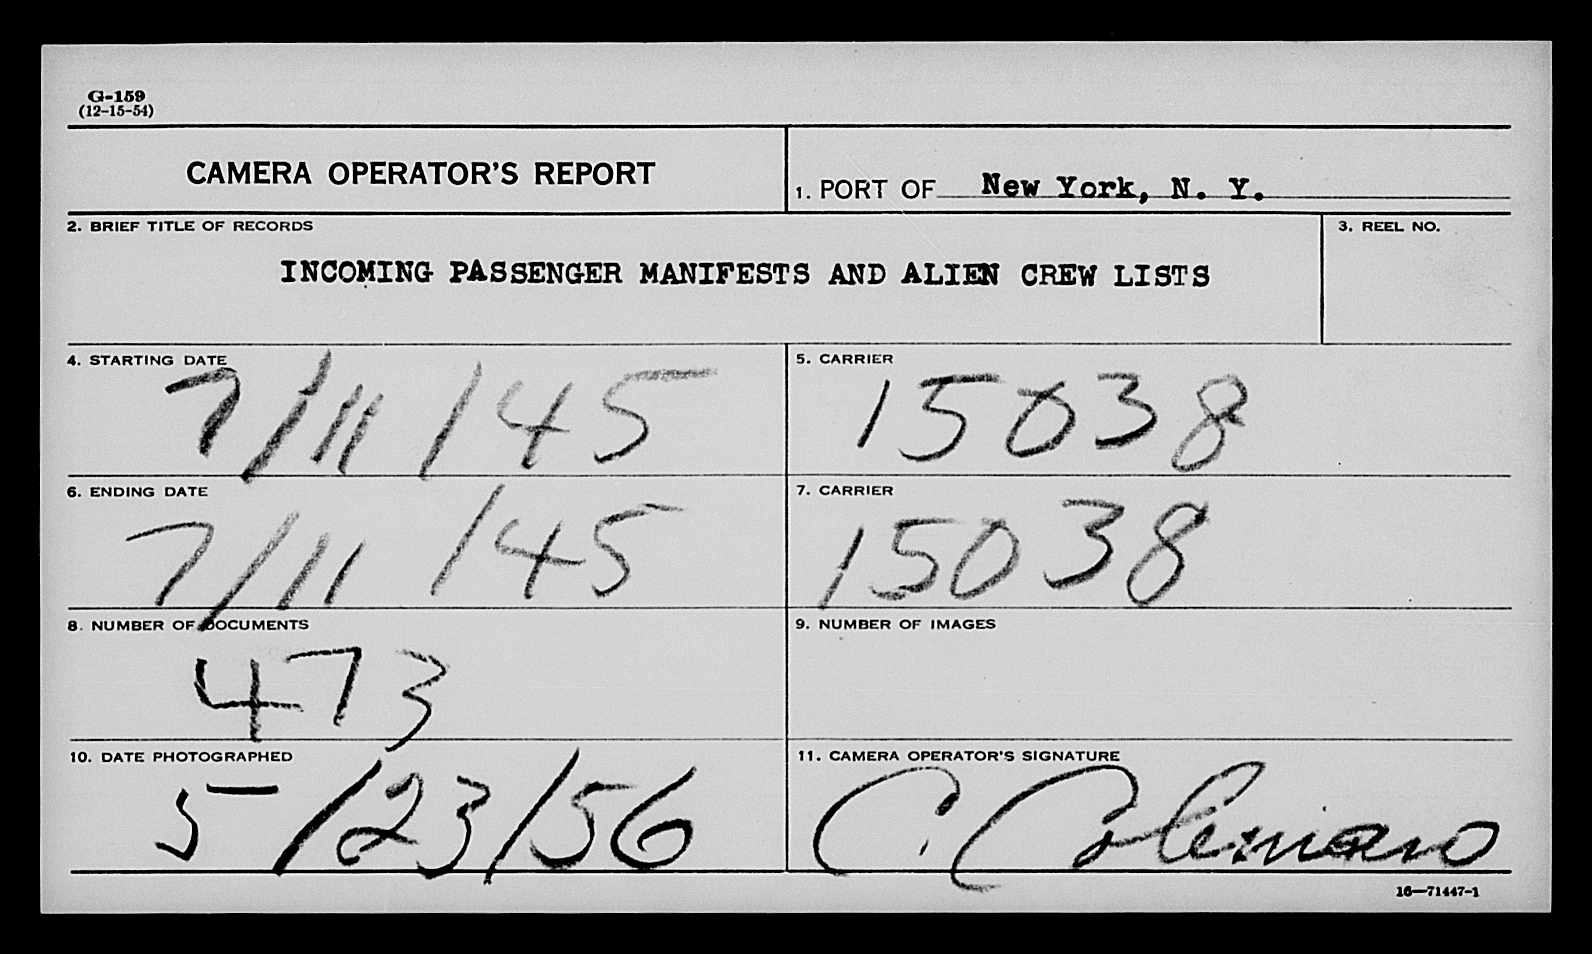 G-159
(12-15-54)
CAMERA OPERATOR'S REPORT
1. PORT OF New York, N. Y.
2. BRIEF TITLE OF RECORDS
INCOMING PASSENGER MANIFESTS AND ALIEN CREW LISTS
3. REEL NO.
4. STARTING DATE
7/11/45
5. CARRIER
15038
6. ENDING DATE
7/11/45
7. CARRIER
15038
8. NUMBER OF DOCUMENTS
473
9. NUMBER OF IMAGES
10. DATE PHOTOGRAPHED
5/23/56
11. CAMERA OPERATOR'S SIGNATURE
C.
16—71447-1